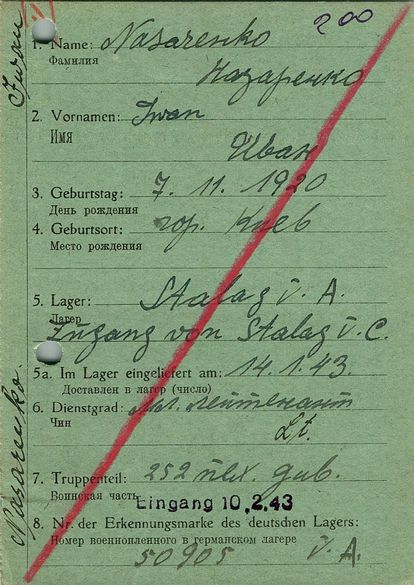 200
1. Name: Nasarenko
Фамилия
Назаренко
2. Vornamen: Iwan
ИМЯ
Иван
3. Geburtstag: 7. 11. 1920
День рождения
4. Geburtsort: гор. Киев
Место рождения
5. Lager: Stalag V. A.
Лагер
Zugang von Stalag V. C.
5a. Im Lager eingeliefert am: 14.1.43.
Доставлен в лагер (число)
6. Dienstgrad: мл. лейтенант
Чин
Lt.
7. Truppenteil: 252 пех. див.
Воинская часть
Eingang 10.2.43
8. Nr. der Erkennungsmarke des deutschen Lagers:
Номер военнопленного в германском лагере
50905 V. A.
Nasarenko Iwan